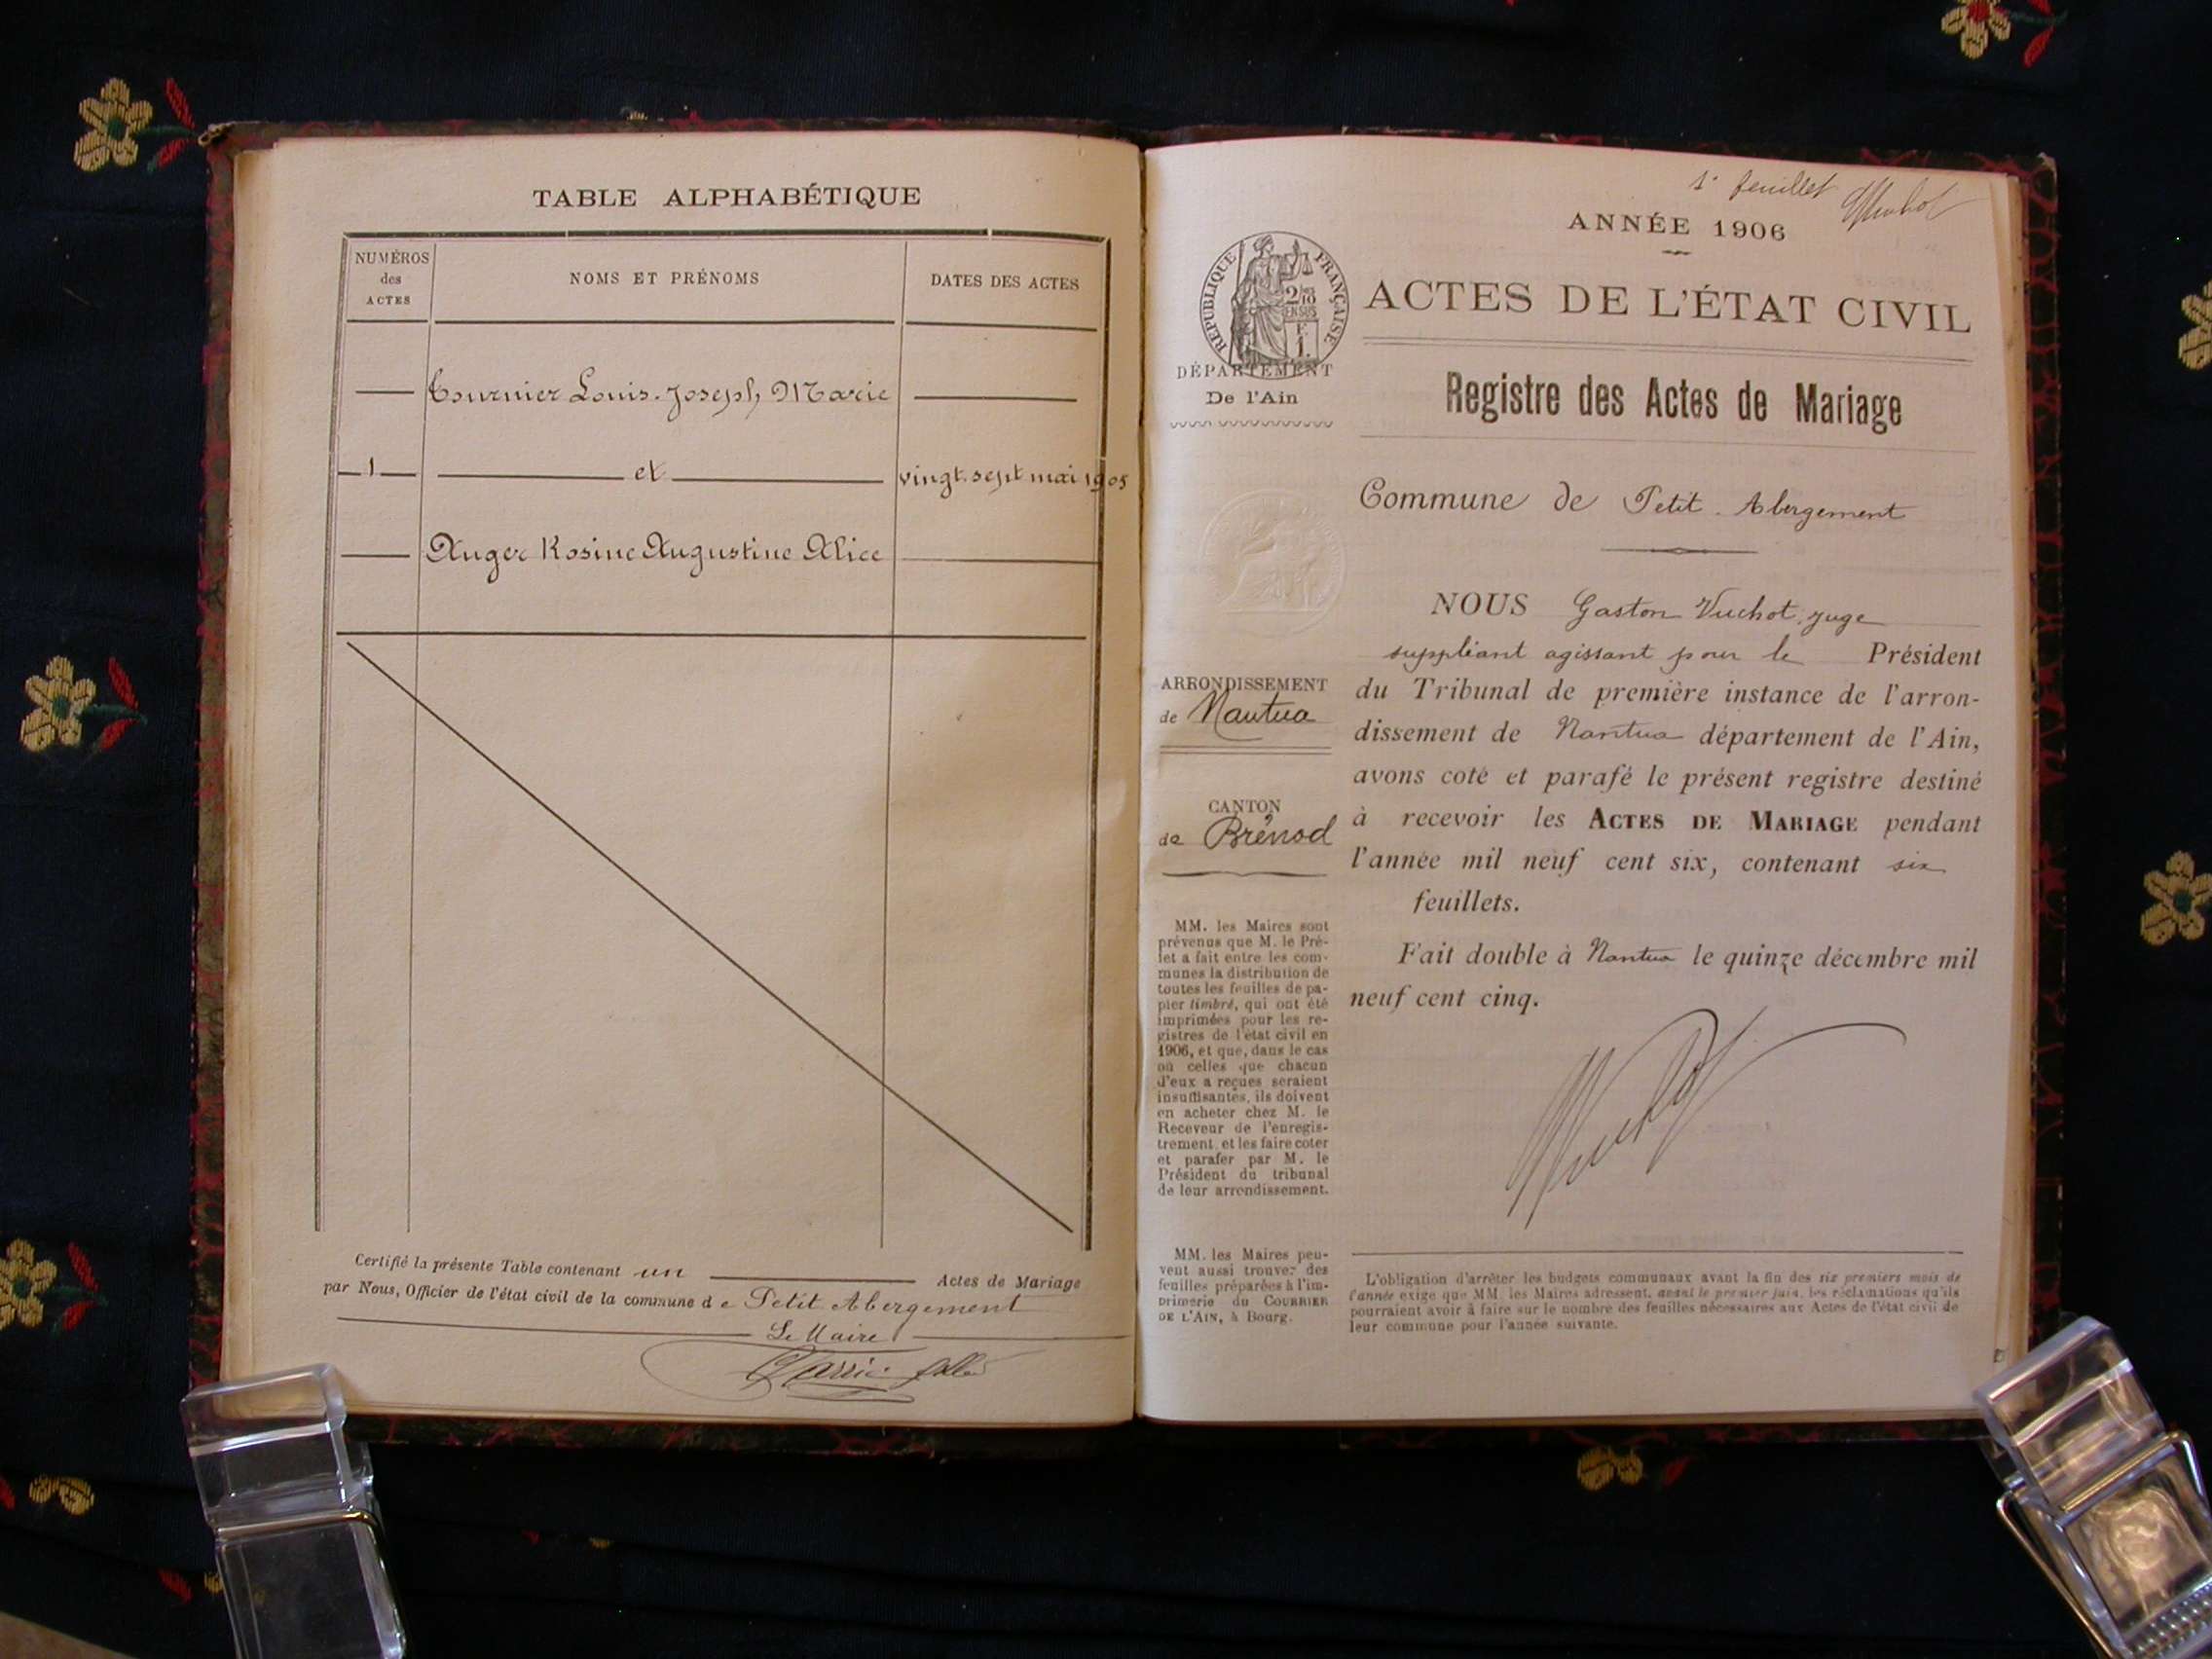 TABLE ALPHABÉTIQUE
NUMÉROS
des
ACTES
NOMS ET PRÉNOMS
DATES DES ACTES
Tournier Louis-Joseph, Marie
1
et
vingt-sept mai 1905
Auger Rosine Augustine Alice
Certifié la présente Table contenant un Actes de Mariage
par Nous, Officier de l'état civil de la commune de Petit Abergement
Le Maire
1er feuillet Vuchot
ANNÉE 1906
RÉPUBLIQUE FRANÇAISE
2/10
EN SUS
F.
1.
DÉPARTEMENT
De l'Ain
ACTES DE L'ÉTAT CIVIL
Registre des Actes de Mariage
Commune de Petit-Abergement
ARRONDISSEMENT
de Nantua
CANTON
de Brénod
MM. les Maires sont
prévenus que M. le Pré-
fet a fait entre les com-
munes la distribution de
toutes les feuilles de pa-
pier timbré, qui ont été
imprimées pour les re-
gistres de l'état civil en
1906, et que, dans le cas
où celles que chacun
d'eux a reçues seraient
insuffisantes, ils doivent
en acheter chez M. le
Receveur de l'enregis-
trement et les faire coter
et parafer par M. le
Président du tribunal
de leur arrondissement.
MM. les Maires peu-
vent aussi trouver des
feuilles préparées à l'im-
primerie du COURRIER
DE L'AIN, à Bourg.
NOUS Gaston Vuchot, juge
suppléant agissant pour le Président
du Tribunal de première instance de l'arron-
dissement de Nantua département de l'Ain,
avons coté et parafé le présent registre destiné
à recevoir les ACTES DE MARIAGE pendant
l'année mil neuf cent six, contenant six
feuillets.
Fait double à Nantua le quinze décembre mil
neuf cent cinq.
Vuchot
L'obligation d'arrêter les budgets communaux avant la fin des six premiers mois de
l'année exige que MM. les Maires adressent, avant le premier juin, les réclamations qu'ils
pourraient avoir à faire sur le nombre des feuilles nécessaires aux Actes de l'état civil de
leur commune pour l'année suivante.